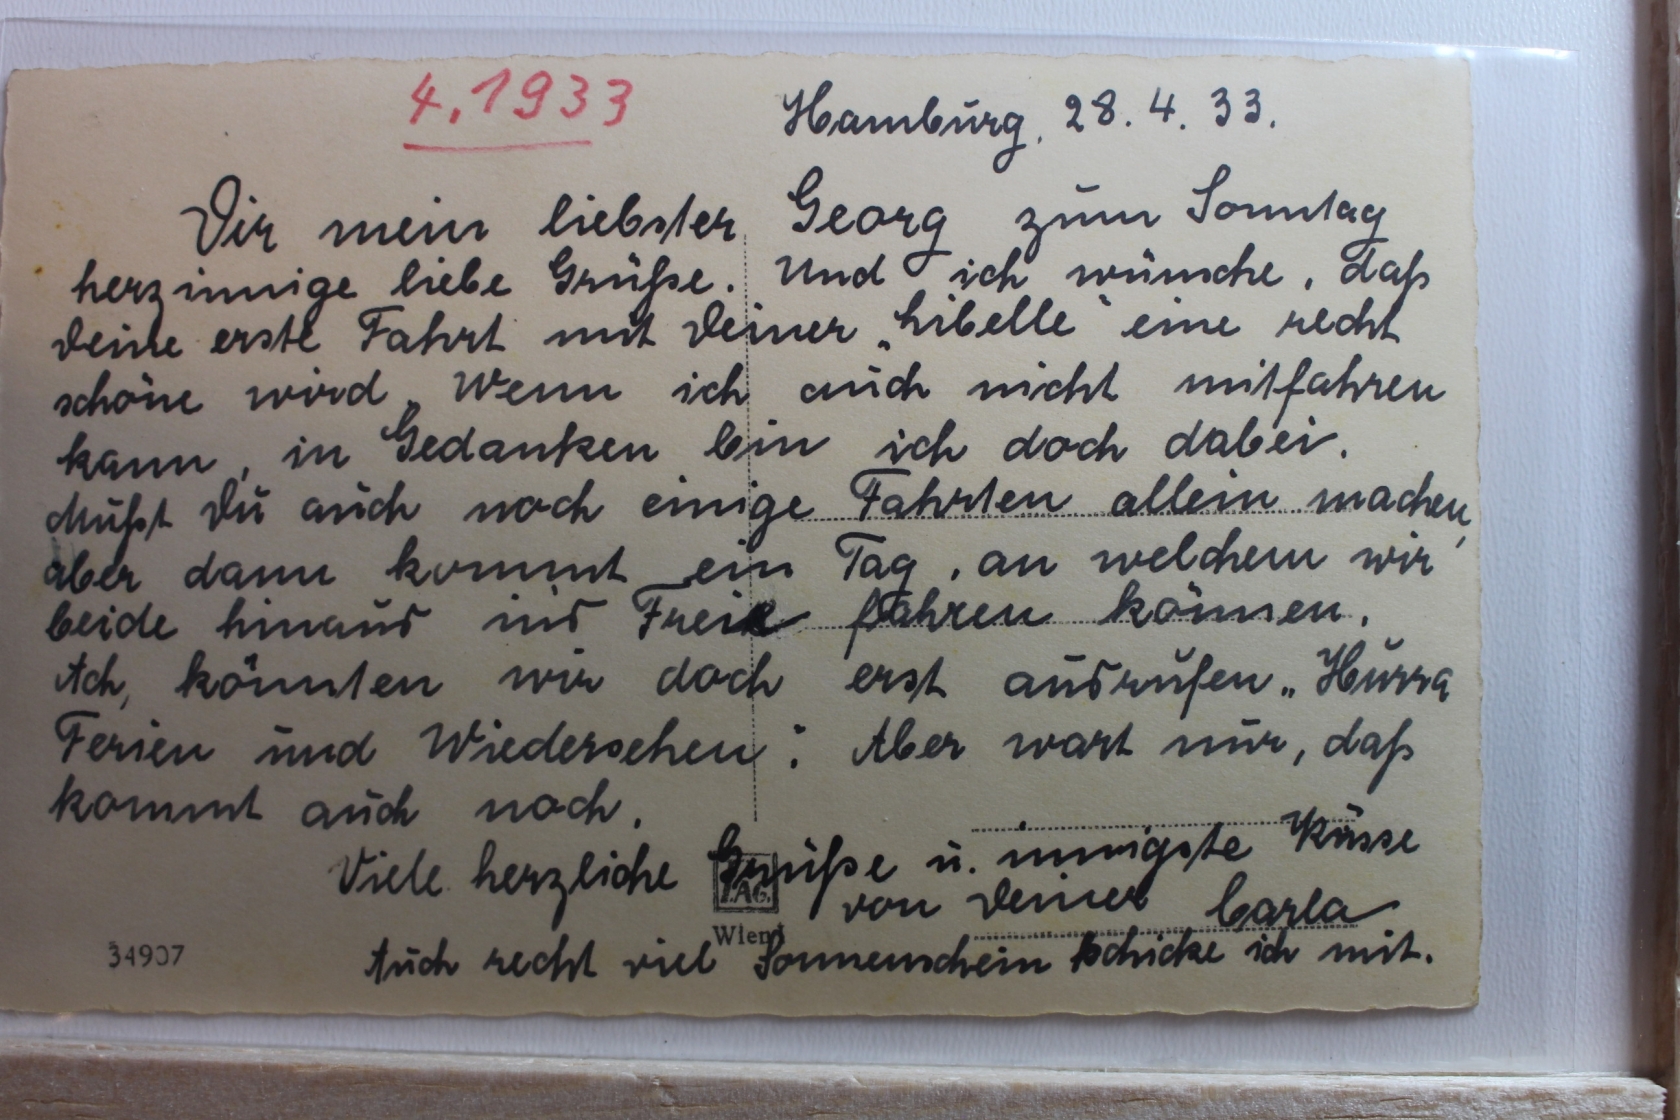 4.1933
Hamburg, 28.4.33.
Dir mein liebster Georg zum Sonntag
herzinnige liebe Grüße. Und ich wünsche, daß
Deine erste Fahrt mit Deiner „Libelle“ eine recht
schöne wird. Wenn ich auch nicht mitfahren
kann, in Gedanken bin ich doch dabei.
Mußt Du auch noch einige Fahrten allein machen,
aber dann kommt ein Tag, an welchem wir
beide hinaus ins Freie fahren können.
Ach, könnten wir doch erst ausrufen „Hurra
Ferien und Wiedersehen“. Aber wart nur, daß
kommt auch noch.
Viele herzliche Grüße u. innigste Küsse
von Deiner Carla
Auch recht viel Sonnenschein schicke ich mit.
34907
Wien I